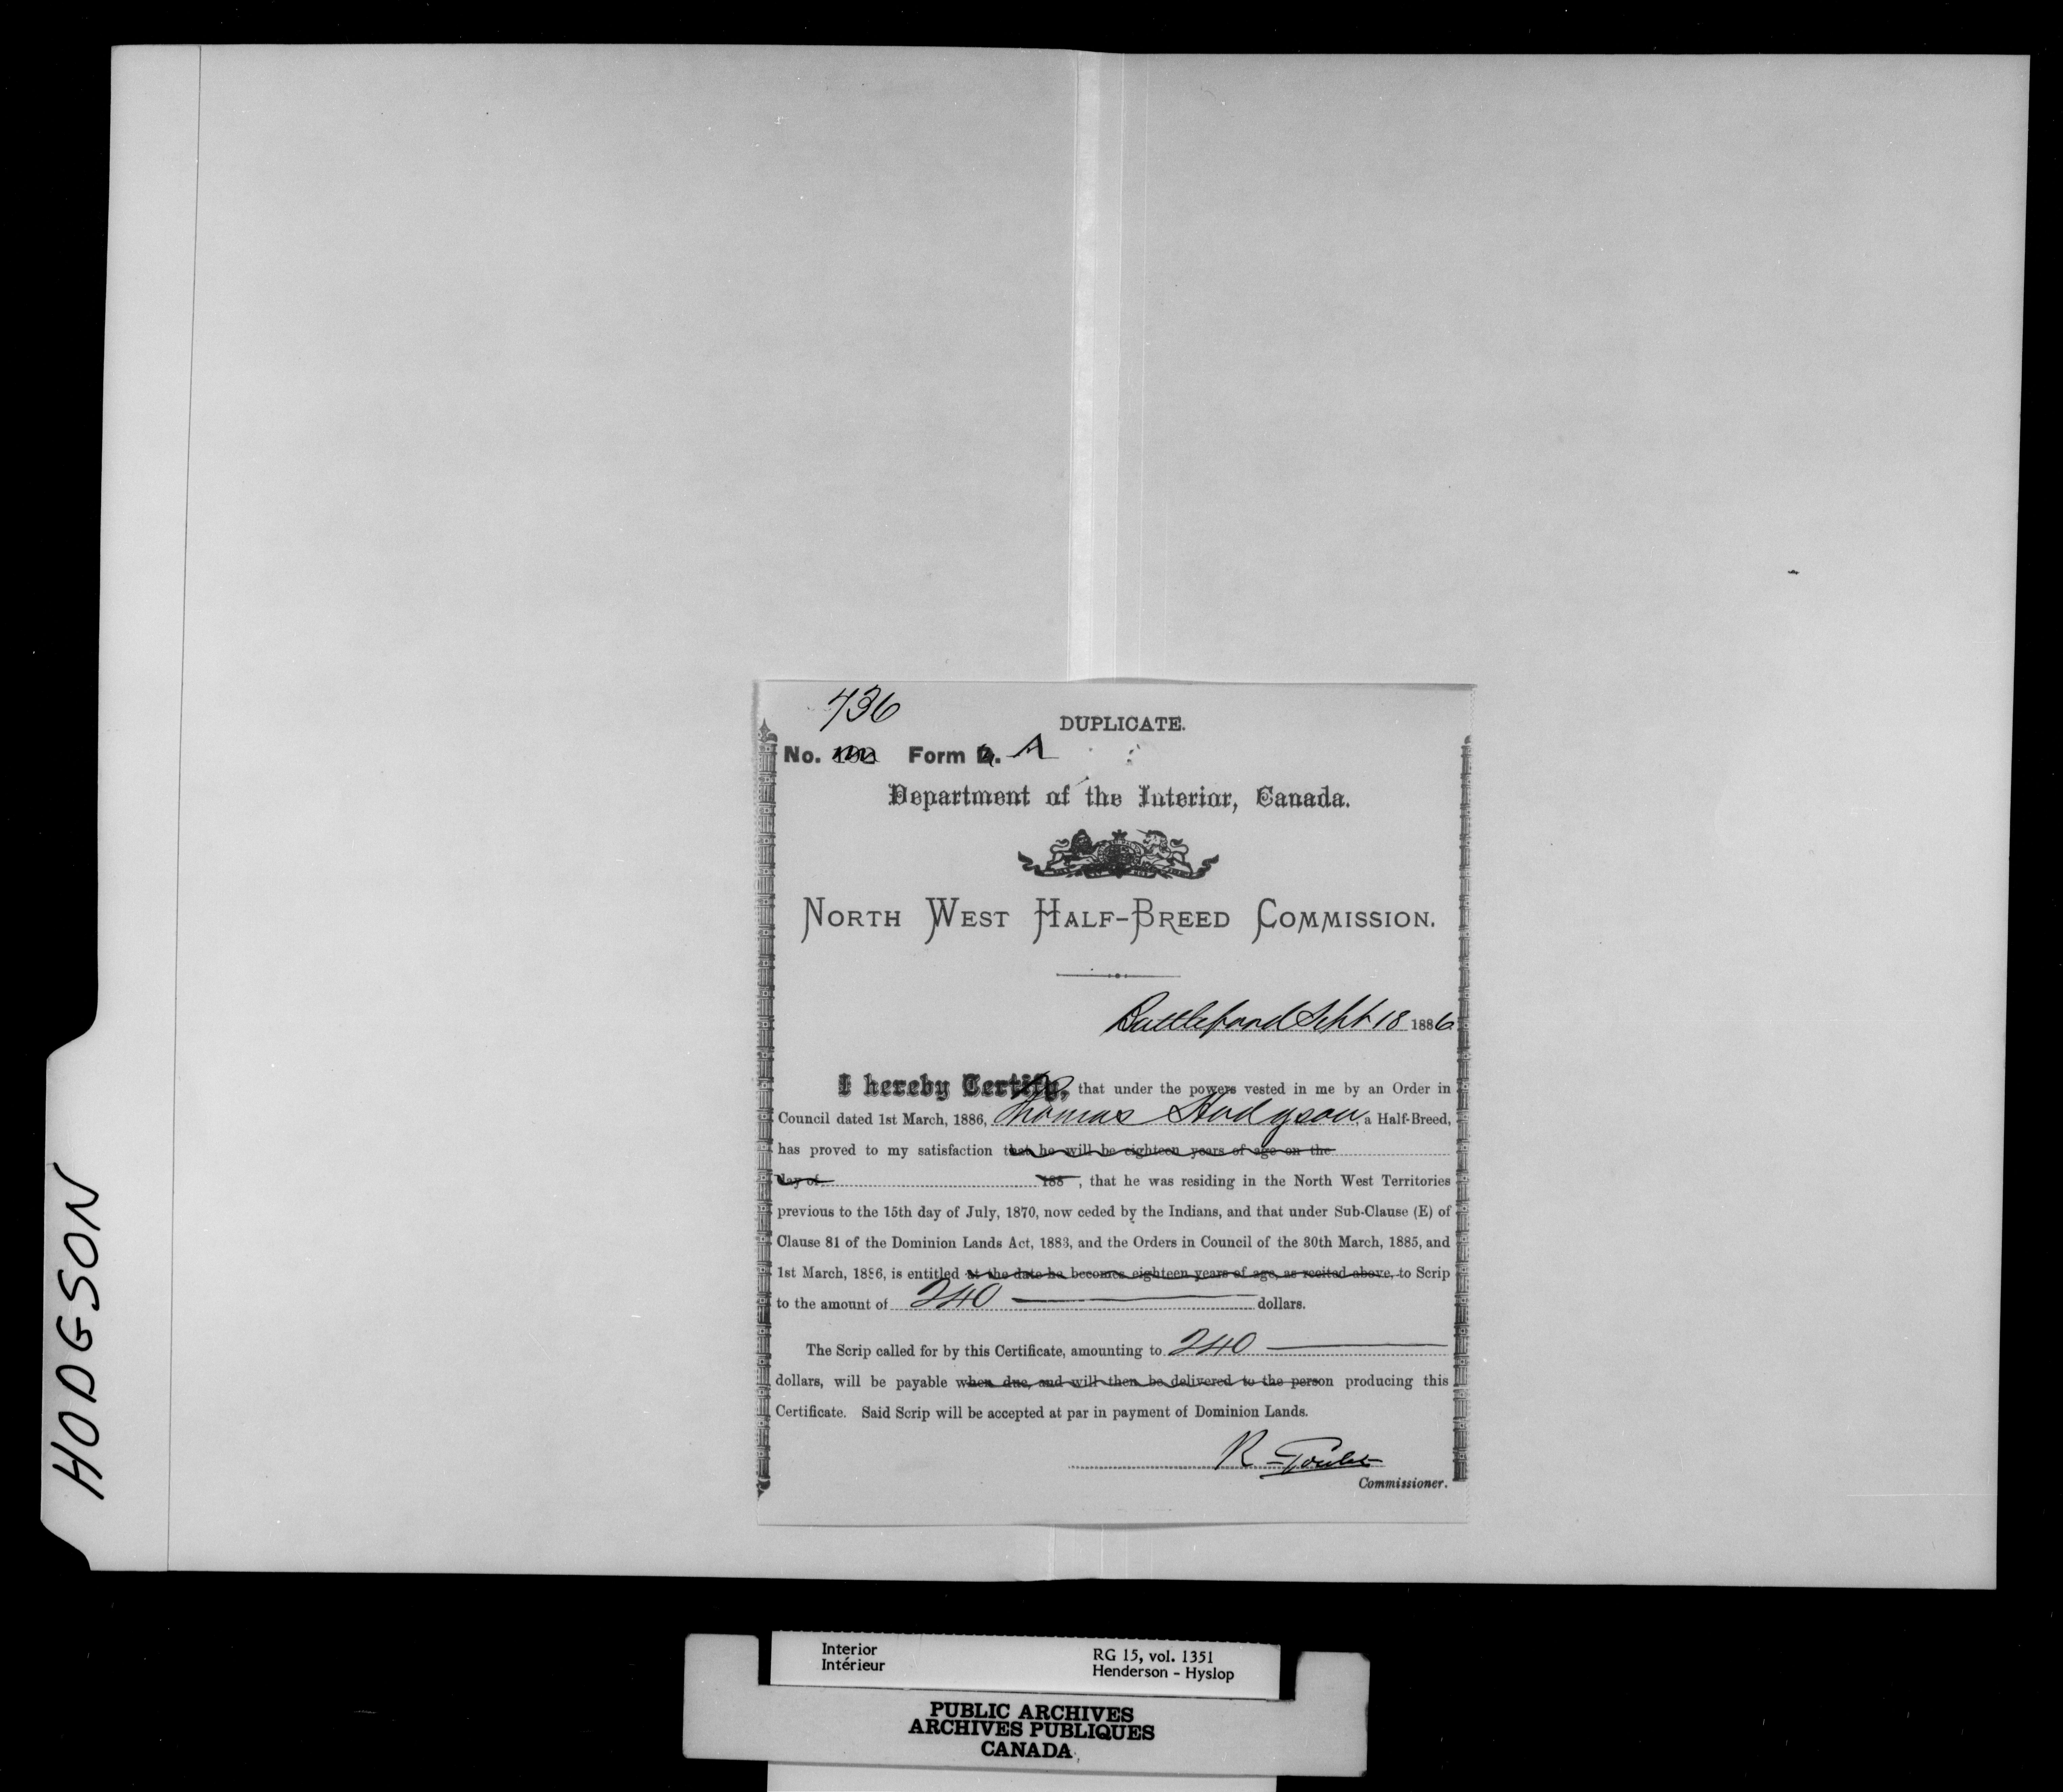 HODGSON
736
DUPLICATE.
No. Form D. A
Department of the Interior, Canada.
NORTH WEST HALF-BREED COMMISSION.
Battleford Sept 18 1886
I hereby Certify, that under the powers vested in me by an Order in
Council dated 1st March, 1886, Thomas Hodgson, a Half-Breed,
has proved to my satisfaction that he will be eighteen years of age on the
day of 188 , that he was residing in the North West Territories
previous to the 15th day of July, 1870, now ceded by the Indians, and that under Sub-Clause (E) of
Clause 81 of the Dominion Lands Act, 1883, and the Orders in Council of the 30th March, 1885, and
1st March, 1886, is entitled at the date he becomes eighteen years of age, as recited above, to Scrip
to the amount of 240 dollars.
The Scrip called for by this Certificate, amounting to 240
dollars, will be payable when due, and will then be delivered to the person producing this
Certificate. Said Scrip will be accepted at par in payment of Dominion Lands.
R Goulet
Commissioner.
Interior
Intérieur
RG 15, vol. 1351
Henderson - Hyslop
PUBLIC ARCHIVES
ARCHIVES PUBLIQUES
CANADA